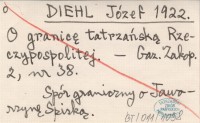 DIEHL Józef 1922.
O granicę tatrzańską Rze-
czypospolitej. — Gaz. Zakop.
2, nr 38.
Spór graniczny o Jawo-
rzynę Spiską.